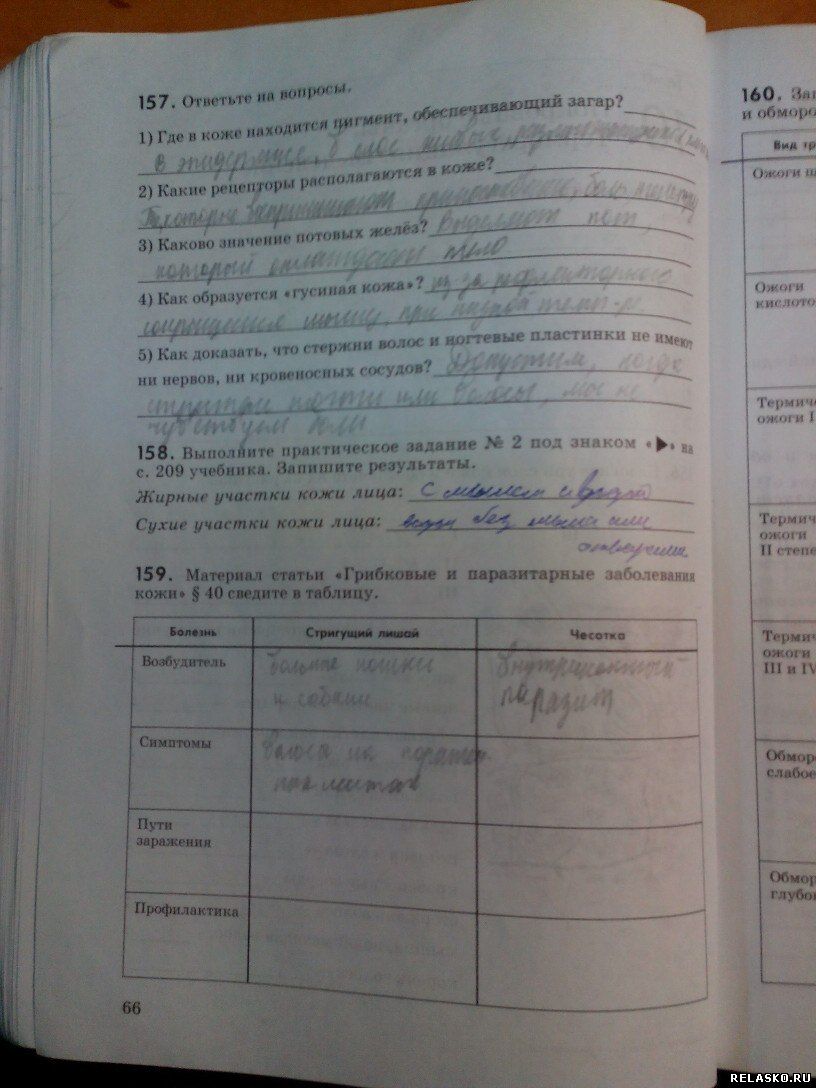 157. Ответьте на вопросы.
1) Где в коже находится пигмент, обеспечивающий загар?
в эпидермисе, в слое живых,
2) Какие рецепторы располагаются в коже?
боль
3) Каково значение потовых желёз? Выделяют пот,
который охлаждает тело
4) Как образуется «гусиная кожа»? из за рефлекторного
сокращения мышц, при низкой темп-ре
5) Как доказать, что стержни волос и ногтевые пластинки не имеют
ни нервов, ни кровеносных сосудов? Допустим, когда
стрижём ногти или волосы, мы не
чувствуем боли
158. Выполните практическое задание № 2 под знаком «▶» на
с. 209 учебника. Запишите результаты.
Жирные участки кожи лица: с мылом и водой
Сухие участки кожи лица: вода без мыла или
159. Материал статьи «Грибковые и паразитарные заболевания
кожи» § 40 сведите в таблицу.
Болезнь Стригущий лишай Чесотка
Возбудитель больные кошки Внутрикожный
и собаки паразит
Симптомы Волосы на
местах
Пути
заражения
Профилактика
66
160.
и обморо
Вид тр
Ожоги
Ожоги
кислото
Термич
ожоги I
Термич
ожоги
II степе
Термич
ожоги
III и IV
Обмор
слабое
Обмор
глубо
RELASKO.RU